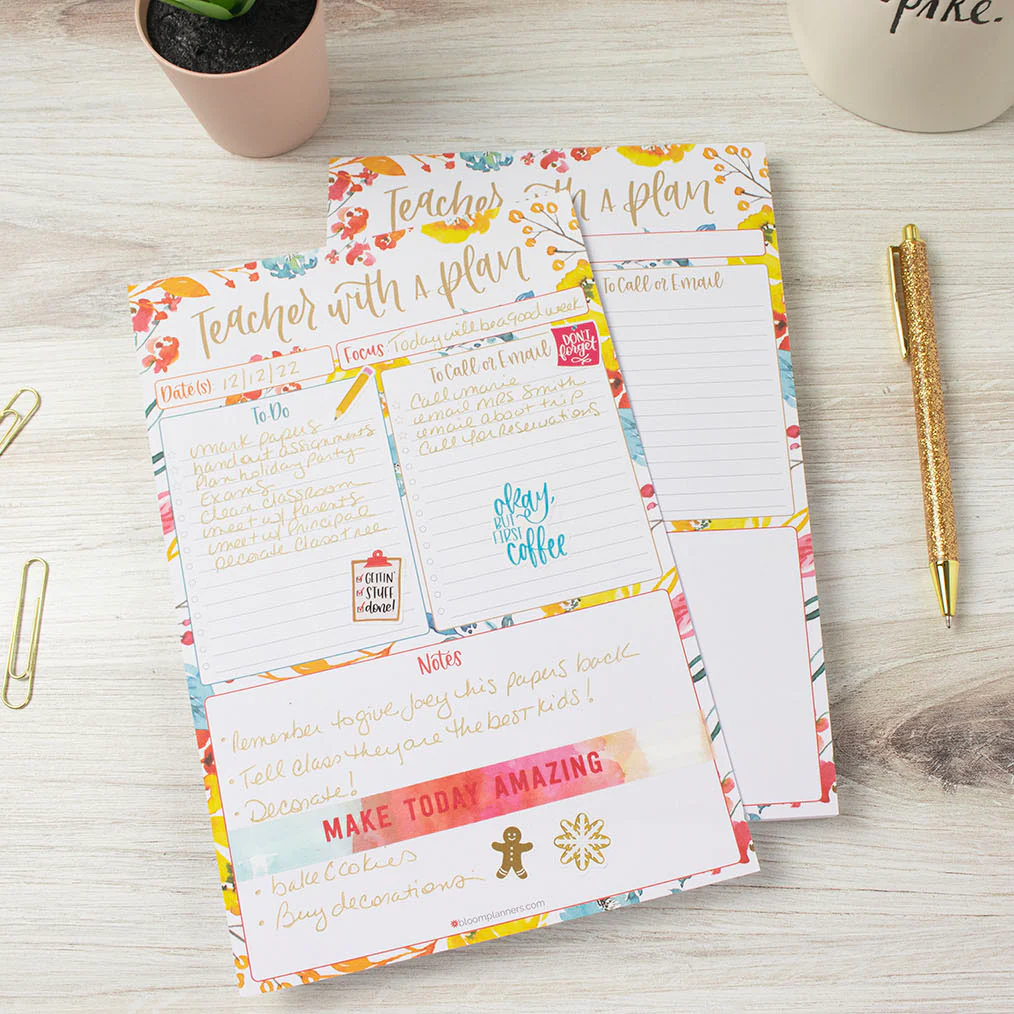 pike.
Teacher with a plan
To Call or Email
Teacher with a plan
Date(s) 12/12/22
Focus: Today will be a good week
To-Do
mark papers
handout assignments
Plan holiday Party
Exams
Clean Classroom
meet w/ Parents
meet w/ Principal
Decorate Class tree
GETTIN'
STUFF
done!
To Call or Email
DON'T
forget
Call marie
email MRS Smith
email about trip
Call for Reservations
okay,
BUT
FIRST
coffee
Notes
• Remember to give Joey his papers back
• Tell class they are the best kids!
• Decorate!
MAKE TODAY AMAZING
• bake Cookies
• Buy decorations
bloomplanners.com